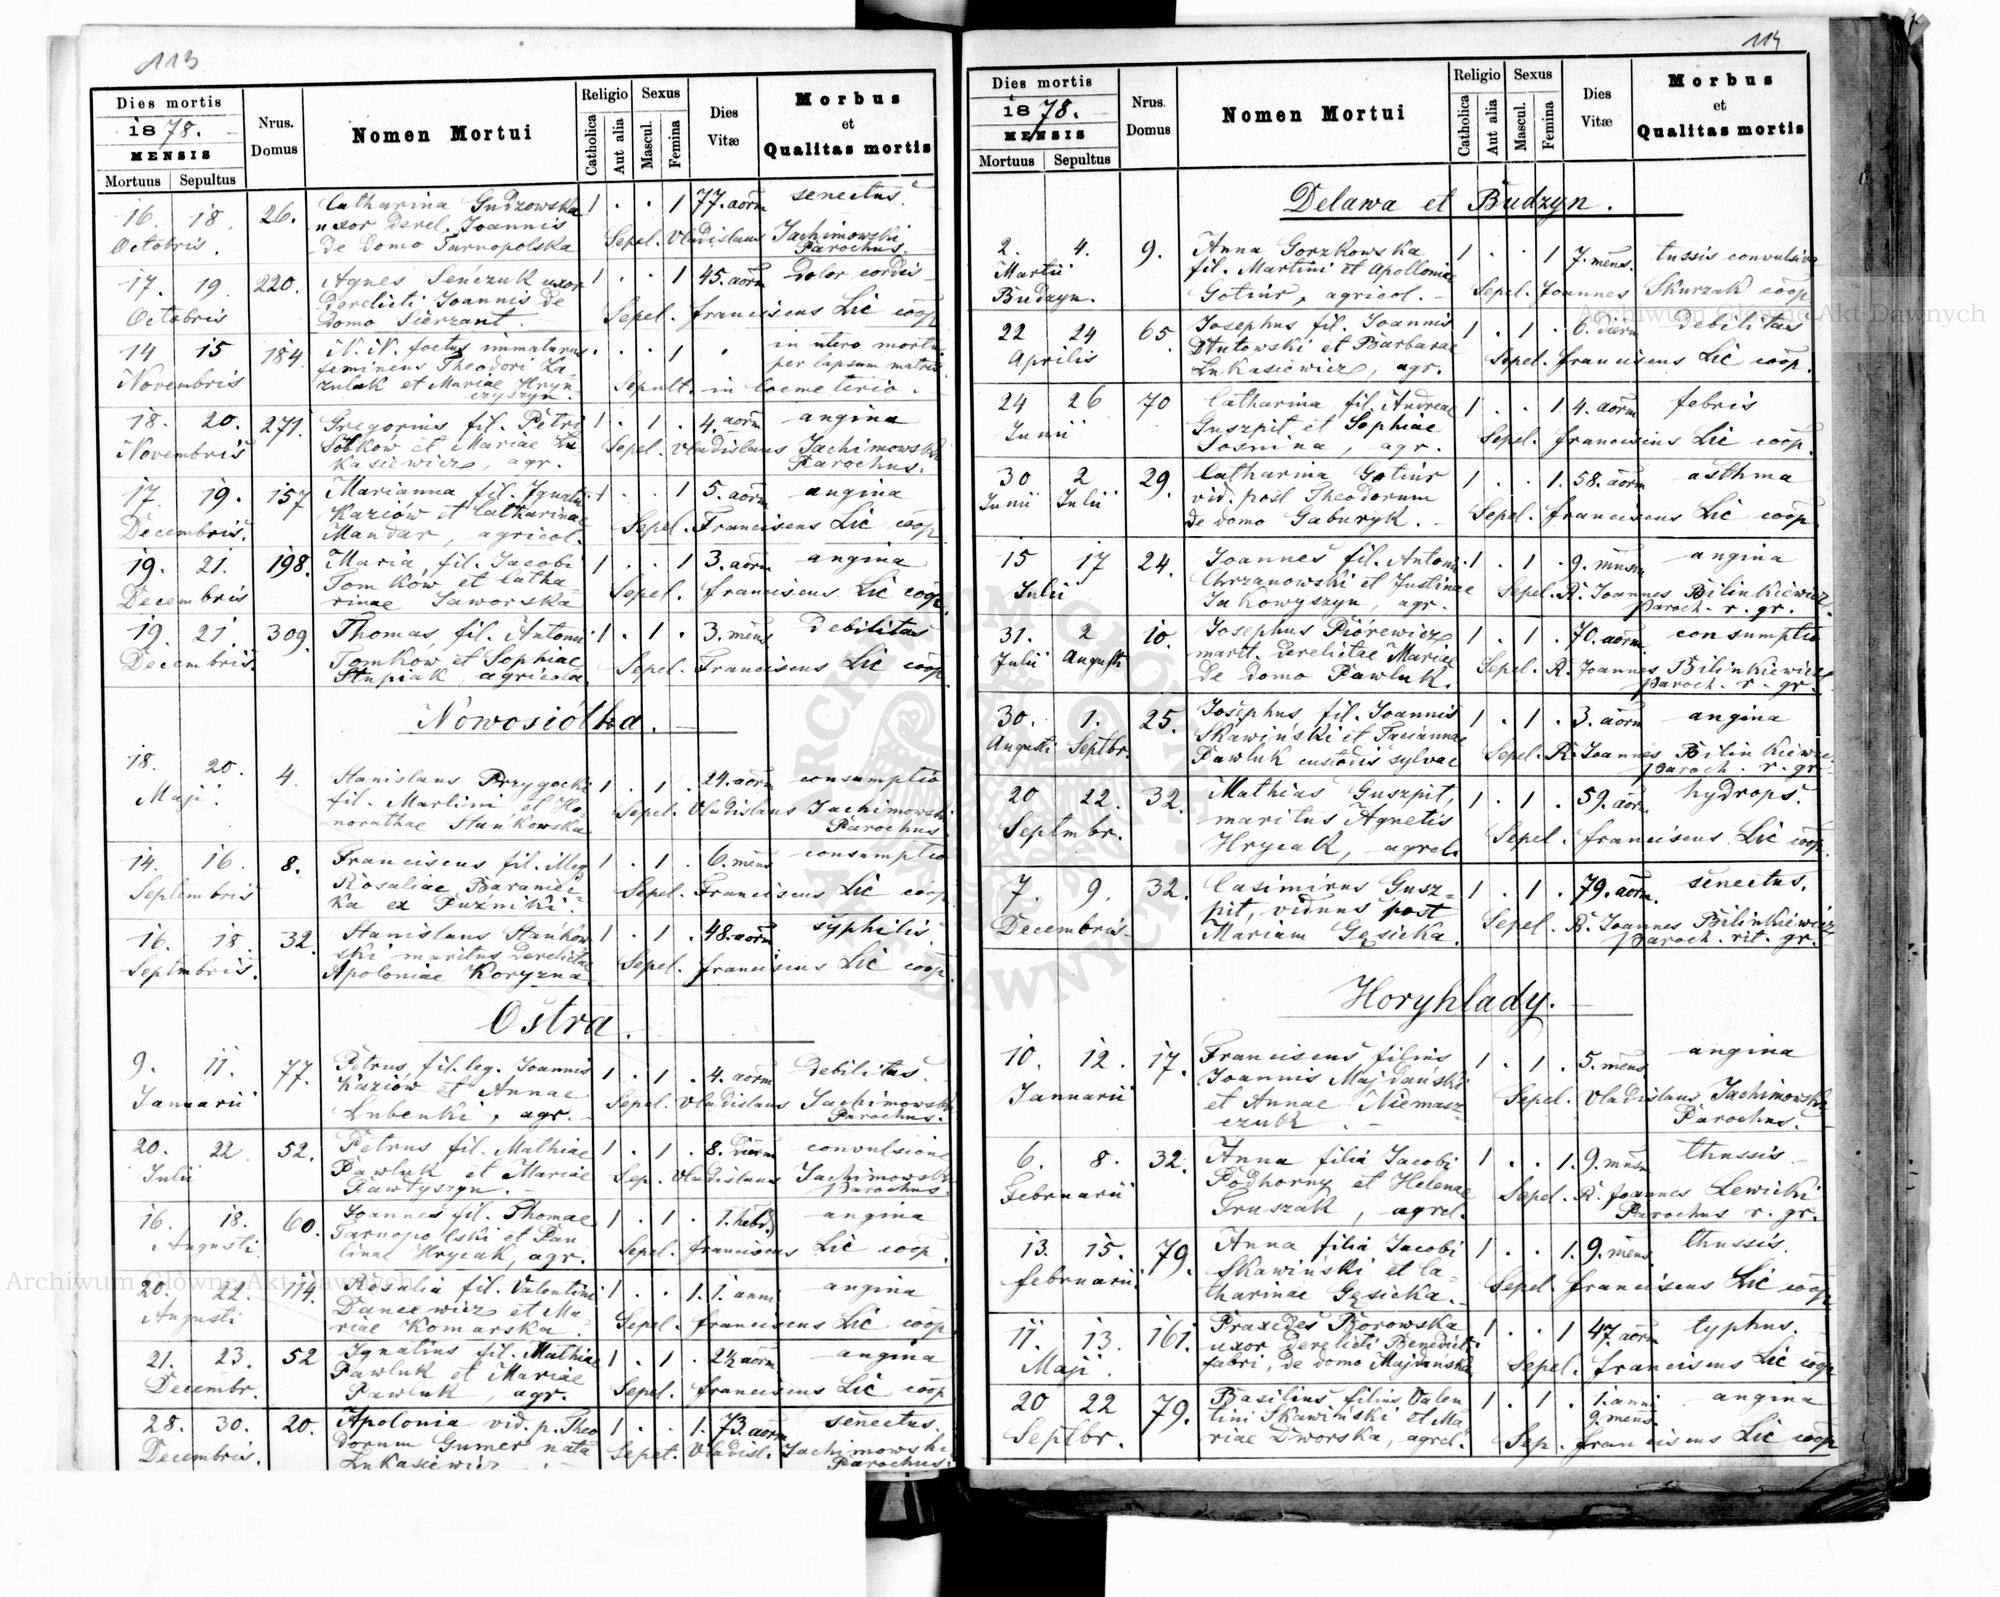 113
Dies mortis
1878.
MENSIS
Mortuus Sepultus
Nrus. Domus
Nomen Mortui
Religio
Catholica
Aut alia
Sexus
Mascul.
Femina
Dies Vitæ
Morbus
et
Qualitas mortis
16 18. 26. Catharina Gudzowska 1 . . 1 77. aorm senectus.
Octobris. uxor derel. Joannis Sepel. Vladislaus Jachimowski
de domo Tarnopolska Parochus.
17. 19. 220. Agnes Senczuk uxor 1 . . 1 45. aorm dolor cordis
Octobris derelicti Joannis de Sepel. franciscus Lic coop
domo Sierzant.
14 15 184. N. N. foetus immaturus . . . 1 . in utero mortu
Novembris femineus Theodori La- per lapsum matris
zuluk et Mariae Hryn- Sepult. in coemeterio.
czyszyn.
18. 20. 271. Gregorius fil. Petri 1 . 1 . 4. aorm angina
Novembris Sobków et Mariae Lu- Sepel. Vladislaus Jachimowski
kasiewicz, agr. Parochus.
17. 19. 157 Marianna fil. Ignatii 1 . . 1 5. aorm angina
Decembris. Kaziów et Catharinae Sepel. Franciscus Lic coop
Mandar, agricol.
19. 21. 198. Maria, fil. Jacobi 1 . . 1 3. aorm angina
Decembris Tomków et Catha- Sepel. franciscus Lic coop.
rinae Jaworska
19. 21. 309. Thomas, fil. Antonii 1 . 1 . 3. mens debilitas
Decembris. Tomków et Sophiae Sepel. Franciscus Lic coop
Stupiak agricola.
Nowosiółka.
18. 20. 4. Stanislaus Przygocki 1 . 1 . 24. aorm consumptio
Maji. fil. Martini et Ho- Sepel. Vladislaus Jachimowski
norathae Stańkowska Parochus
14. 16. 8. Franciscus fil. illeg. 1 . 1 . 6. mens consumptio
Septembris Rosaliae Baraniec- Sepel. Franciscus Lic coop
ka ex Puźniki.
16. 18. 32. Stanislaus Stańkow 1 . 1 . 48. aorm syphilis
Septmbris. ski maritus derelictae Sepel. franciscus Lic coop.
Apoloniae Koryzna
Ostra.
9. 11. 77. Petrus, fil. leg. Joannis 1 . 1 . 4. aorm debilitas.
Januarii Kaziów et Annae Sepel. Vladislaus Jachimowski
Lubenki, agr. Parochus.
20. 22. 52. Petrus fil. Mathiae 1 . 1 . 8. dierm convulsione
Julii Pawluk et Mariae Sep. Vladislaus Jachimowski
Pawłyszyn. Parochus.
16. 18. 60. Joannes fil. Thomae 1 . 1 . 1. hebd. angina
Augusti. Tarnopolski et Pau Sepel. franciscus Lic coop.
linae Hrycak, agr.
20. 22. 114. Rosalia fil. Valentini 1 . . 1. 1. anni angina
Augusti Dancewicz et Ma- Sepel. franciscus Lic coop
riae Komarska.
21. 23. 52 Ignatius fil. Mathiae 1 . 1 . 2½ aorm angina
Decembr. Pawluk et Mariae Sepel. franciscus Lic coop
Pawluk, agr.
28. 30. 20. Apolonia vid. p. Theo 1 . . 1. 73. aorm senectus.
Decembris. dorum Gumer nata Sepel. Vladisl. Jachimowski
Lukasiewicz. Parochus.
114
Dies mortis
1878.
MENSIS
Mortuus Sepultus
Nrus. Domus
Nomen Mortui
Religio
Catholica
Aut alia
Sexus
Mascul.
Femina
Dies Vitæ
Morbus
et
Qualitas mortis
Delawa et Budzyn.
2. 4. 9. Anna Gorzkowska 1 . . 1 7. mens. tussis convulsiva
Martii fil. Martini et Apolloniae Sepel. Joannes Skurzak coop
Budzyn. Gotiur, agricol.
22 24 65. Josephus fil. Joannis 1 . 1 . 6. dierm debilitas
Aprilis Dłutowski et Barbarae Sepel. franciscus Lic coop.
Lukasiewicz, agr.
24 26 70 Catharina fil. Andreae 1 . . 1. 4. aorm febris
Junii Guszpit et Sophiae Sepel. franciscus Lic coop.
Sosnina, agr.
30 2 29. Catharina Gotiur 1 . . 1. 58. aorm asthma
Junii Julii vid. post Theodorum Sepel. franciscus Lic coop.
de domo Gaburyk.
15 17 24. Joannes fil. Antonii 1 . 1 . 9. mnsm angina
Julii Chrzanowski et Justinae Sepel. R. Joannes Bilinkiewicz
Jakowyszyn, agr. Paroch. r. gr.
31. 2 10. Josephus Piórewicz 1 . 1 . 70. aorm. consumptio
Julii Augusti marit. derelictae Mariae Sepel. R. Joannes Bilinkiewicz
de domo Pawluk. Paroch. r. gr.
30. 1. 25. Josephus fil. Joannis 1 . 1 . 3. aorm angina
Augusti Septbr. Skawiński et Paciannae Sepel. R. Joannes Bilinkiewicz
Pawluk custodis sylvae Paroch. r. gr.
20 22. 32. Mathias Guszpit, 1 . 1 . 59. aorm hydrops.
Septmbr. maritus Agnetis Sepel. franciscus Lic coop.
Hrycak, agrcl.
7. 9. 32. Casimirus Gusz- 1 . 1 . 79. aorm. senectus.
Decembris. pit, viduus post Sepel. R. Joannes Bilinkiewicz
Mariam Gęsicka. Paroch. rit. gr.
Horyhlady.
10. 12. 17. Franciscus filius 1 . 1 . 5. mens angina
Januarii Joannis Majdański Sepel. Vladislaus Jachimowski
et Annae Niemasz- Parochus.
czuk.
6. 8. 32. Anna filia Jacobi 1 . . 1. 9. mnsm thussis
Februarii Podhorny et Helenae Sepel. R. Joannes Lewicki
Gruszak, agrcl. Parochus r. gr.
13. 15. 79. Anna filia Jacobi 1 . . 1. 9. mens. thussis.
februarii Skawiński et Ca- Sepel. franciscus Lic coop
tharinae Gęsicka.
11. 13. 161. Praxedes Borowska 1 . . 1 47. aorm typhus.
Maji. uxor derelicti Benedicti Sepel. franciscus Lic coop
fabri, de domo Majdańska
20 22 79. Basilius filius Valen 1 . 1 . 1. anni angina
Septbr. tini Skawiński et Ma- 9. mens.
riae Dworska, agrcl. Sep. franciscus Lic coop
Archiwum Główne Akt Dawnych
Archiwum Główne Akt Dawnych
ARCHIWUM GŁÓWNE AKT DAWNYCH